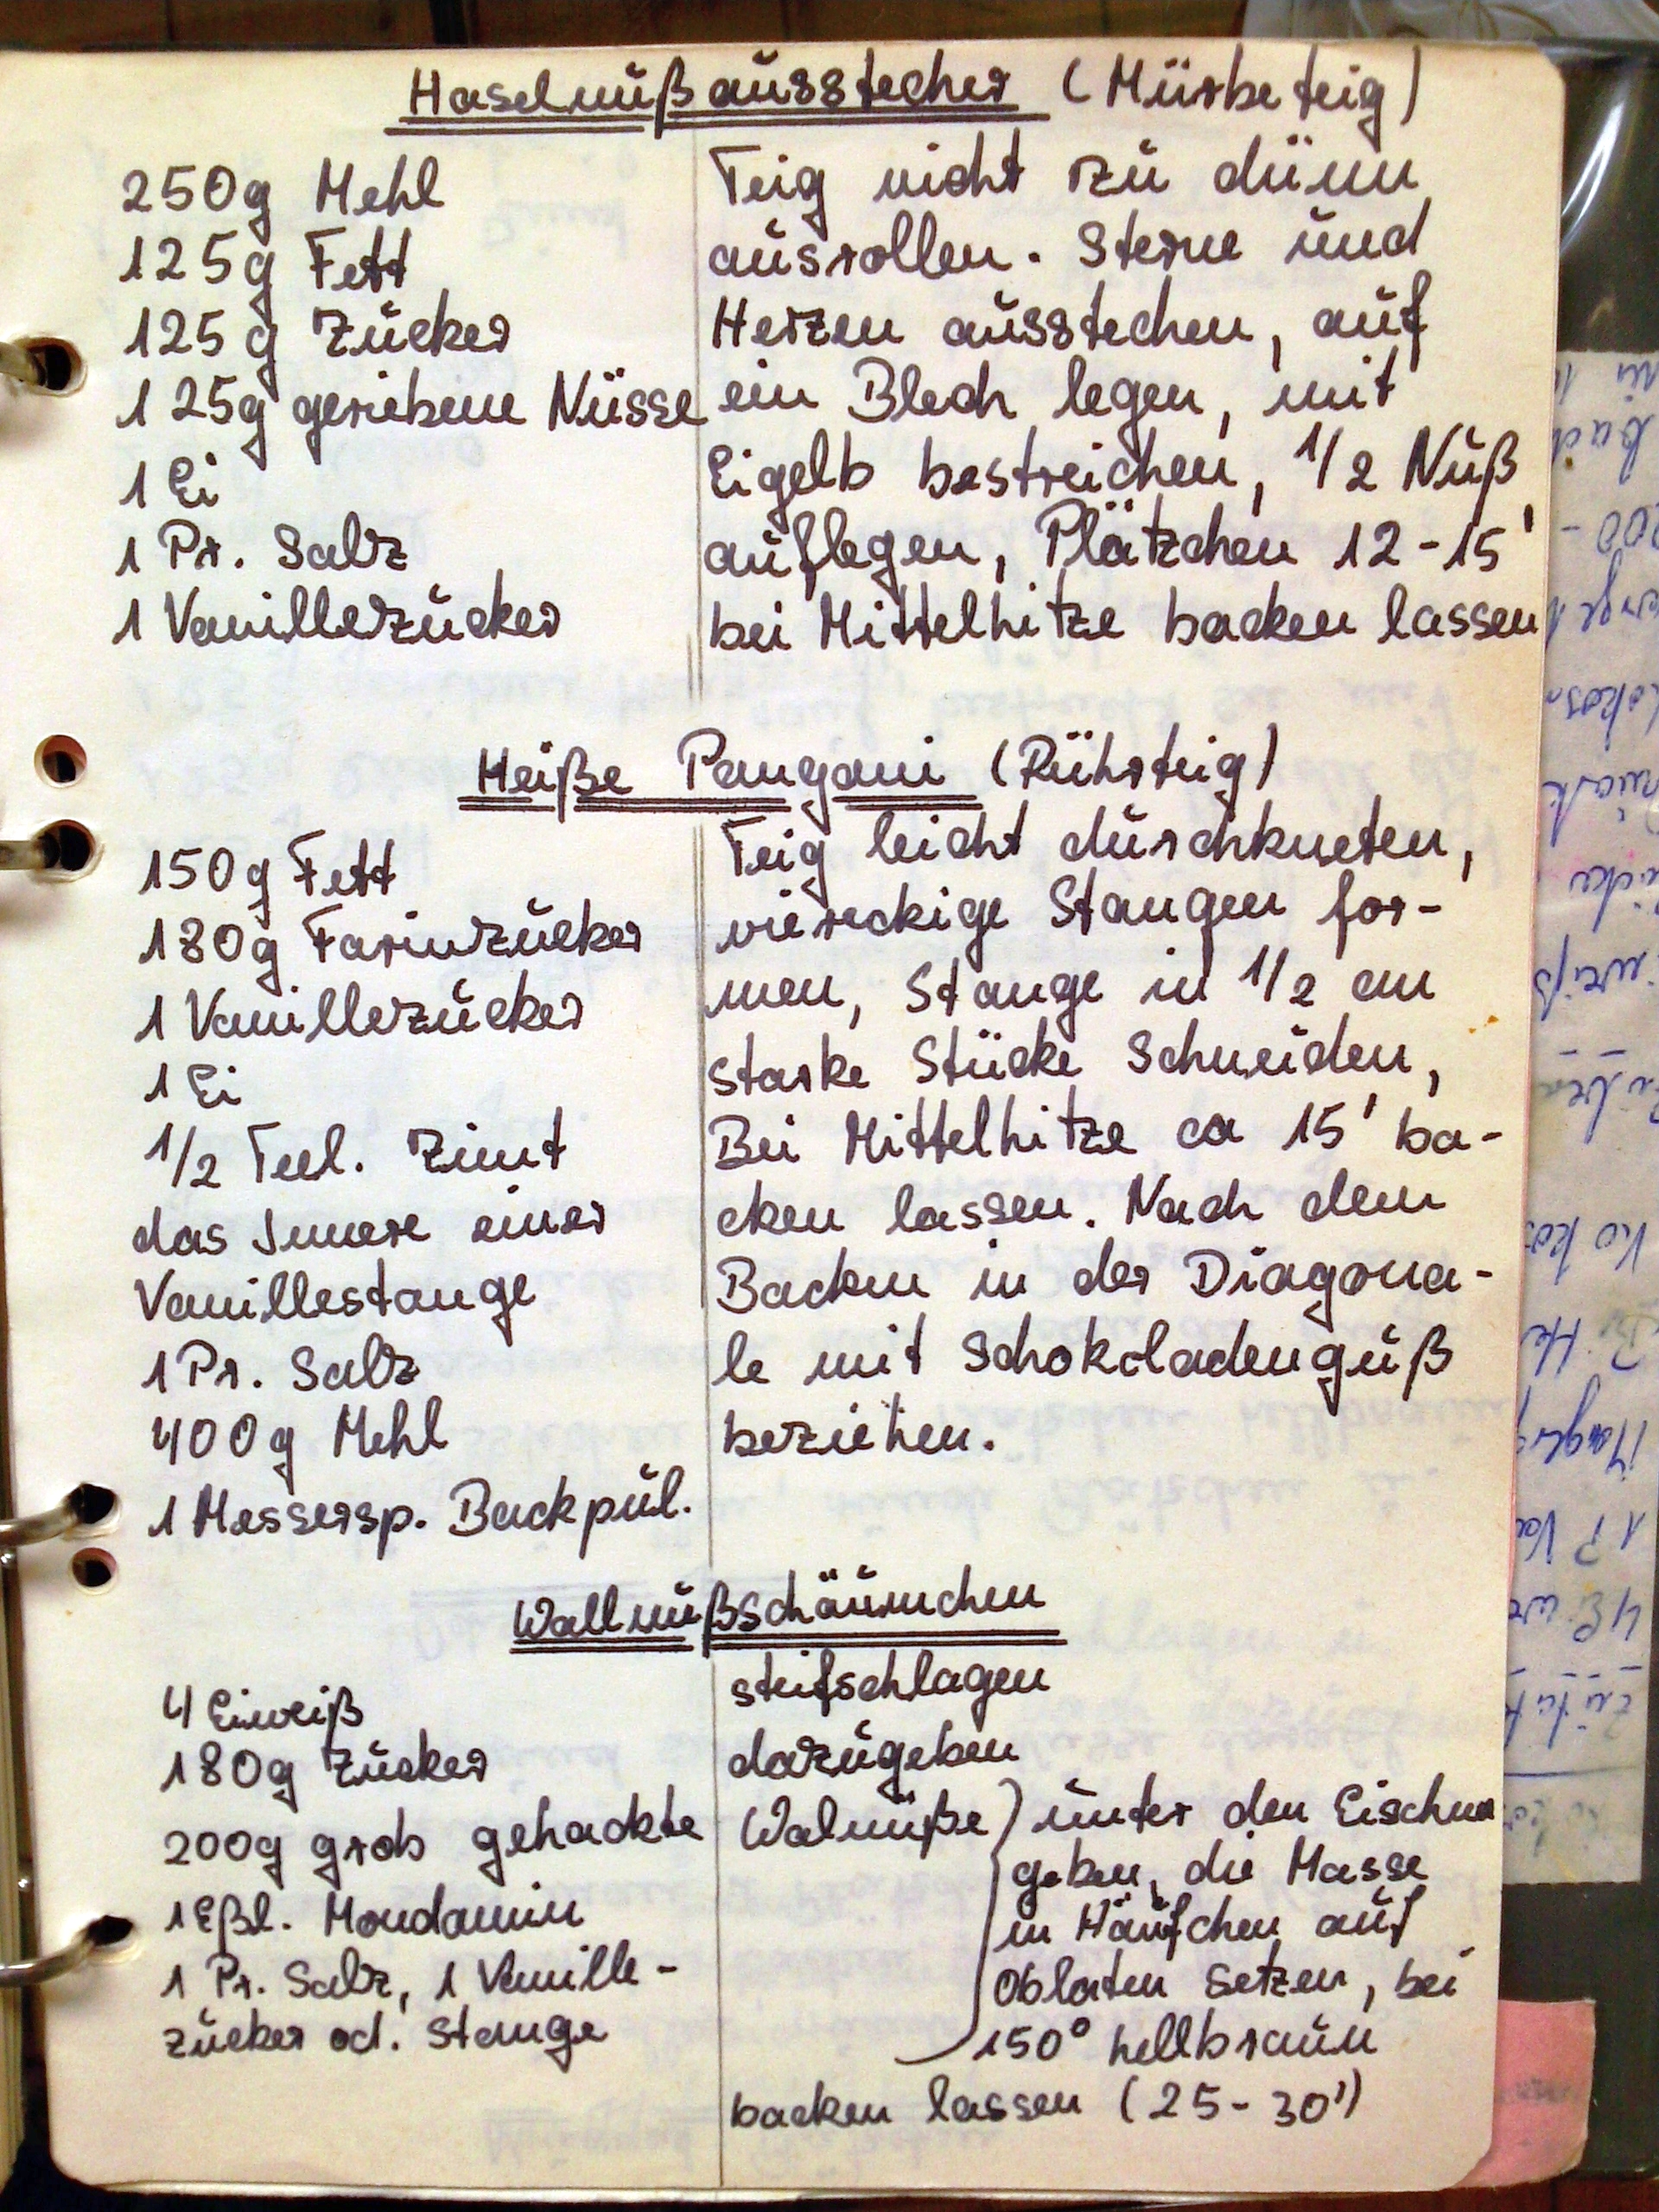 Haselnußausstecher (Mürbeteig)
250g Mehl
125g Fett
125g Zucker
125g geriebene Nüsse
1 Ei
1 Pr. Salz
1 Vanillezucker
Teig nicht zu dünn
ausrollen. Sterne und
Herzen ausstechen, auf
ein Blech legen, mit
Eigelb bestreichen, 1/2 Nuß
auflegen, Plätzchen 12-15'
bei Mittelhitze backen lassen
Heiße Pangani (Rührteig)
150g Fett
180g Farinzucker
1 Vanillezucker
1 Ei
1/2 Teel. Zimt
das Innere einer
Vanillestange
1 Pr. Salz
400g Mehl
1 Messersp. Backpul.
Teig leicht durchkneten,
viereckige Stangen for-
men, Stange in 1/2 cm
starke Stücke Schneiden,
Bei Mittelhitze ca 15' ba-
cken lassen. Nach dem
Backen in der Diagona-
le mit Schokoladenguß
beziehen.
Wallnußschäumchen
4 Eiweiß
180g Zucker
200g grob gehackte
1 Eßl. Mondamin
1 Pr. Salz, 1 Vanille-
zucker od. Stange
steifschlagen
dazugeben
Walnüße
unter den Eischnee
geben, die Masse
in Häufchen auf
Oblaten setzen, bei
150° hellbraun
backen lassen (25-30')